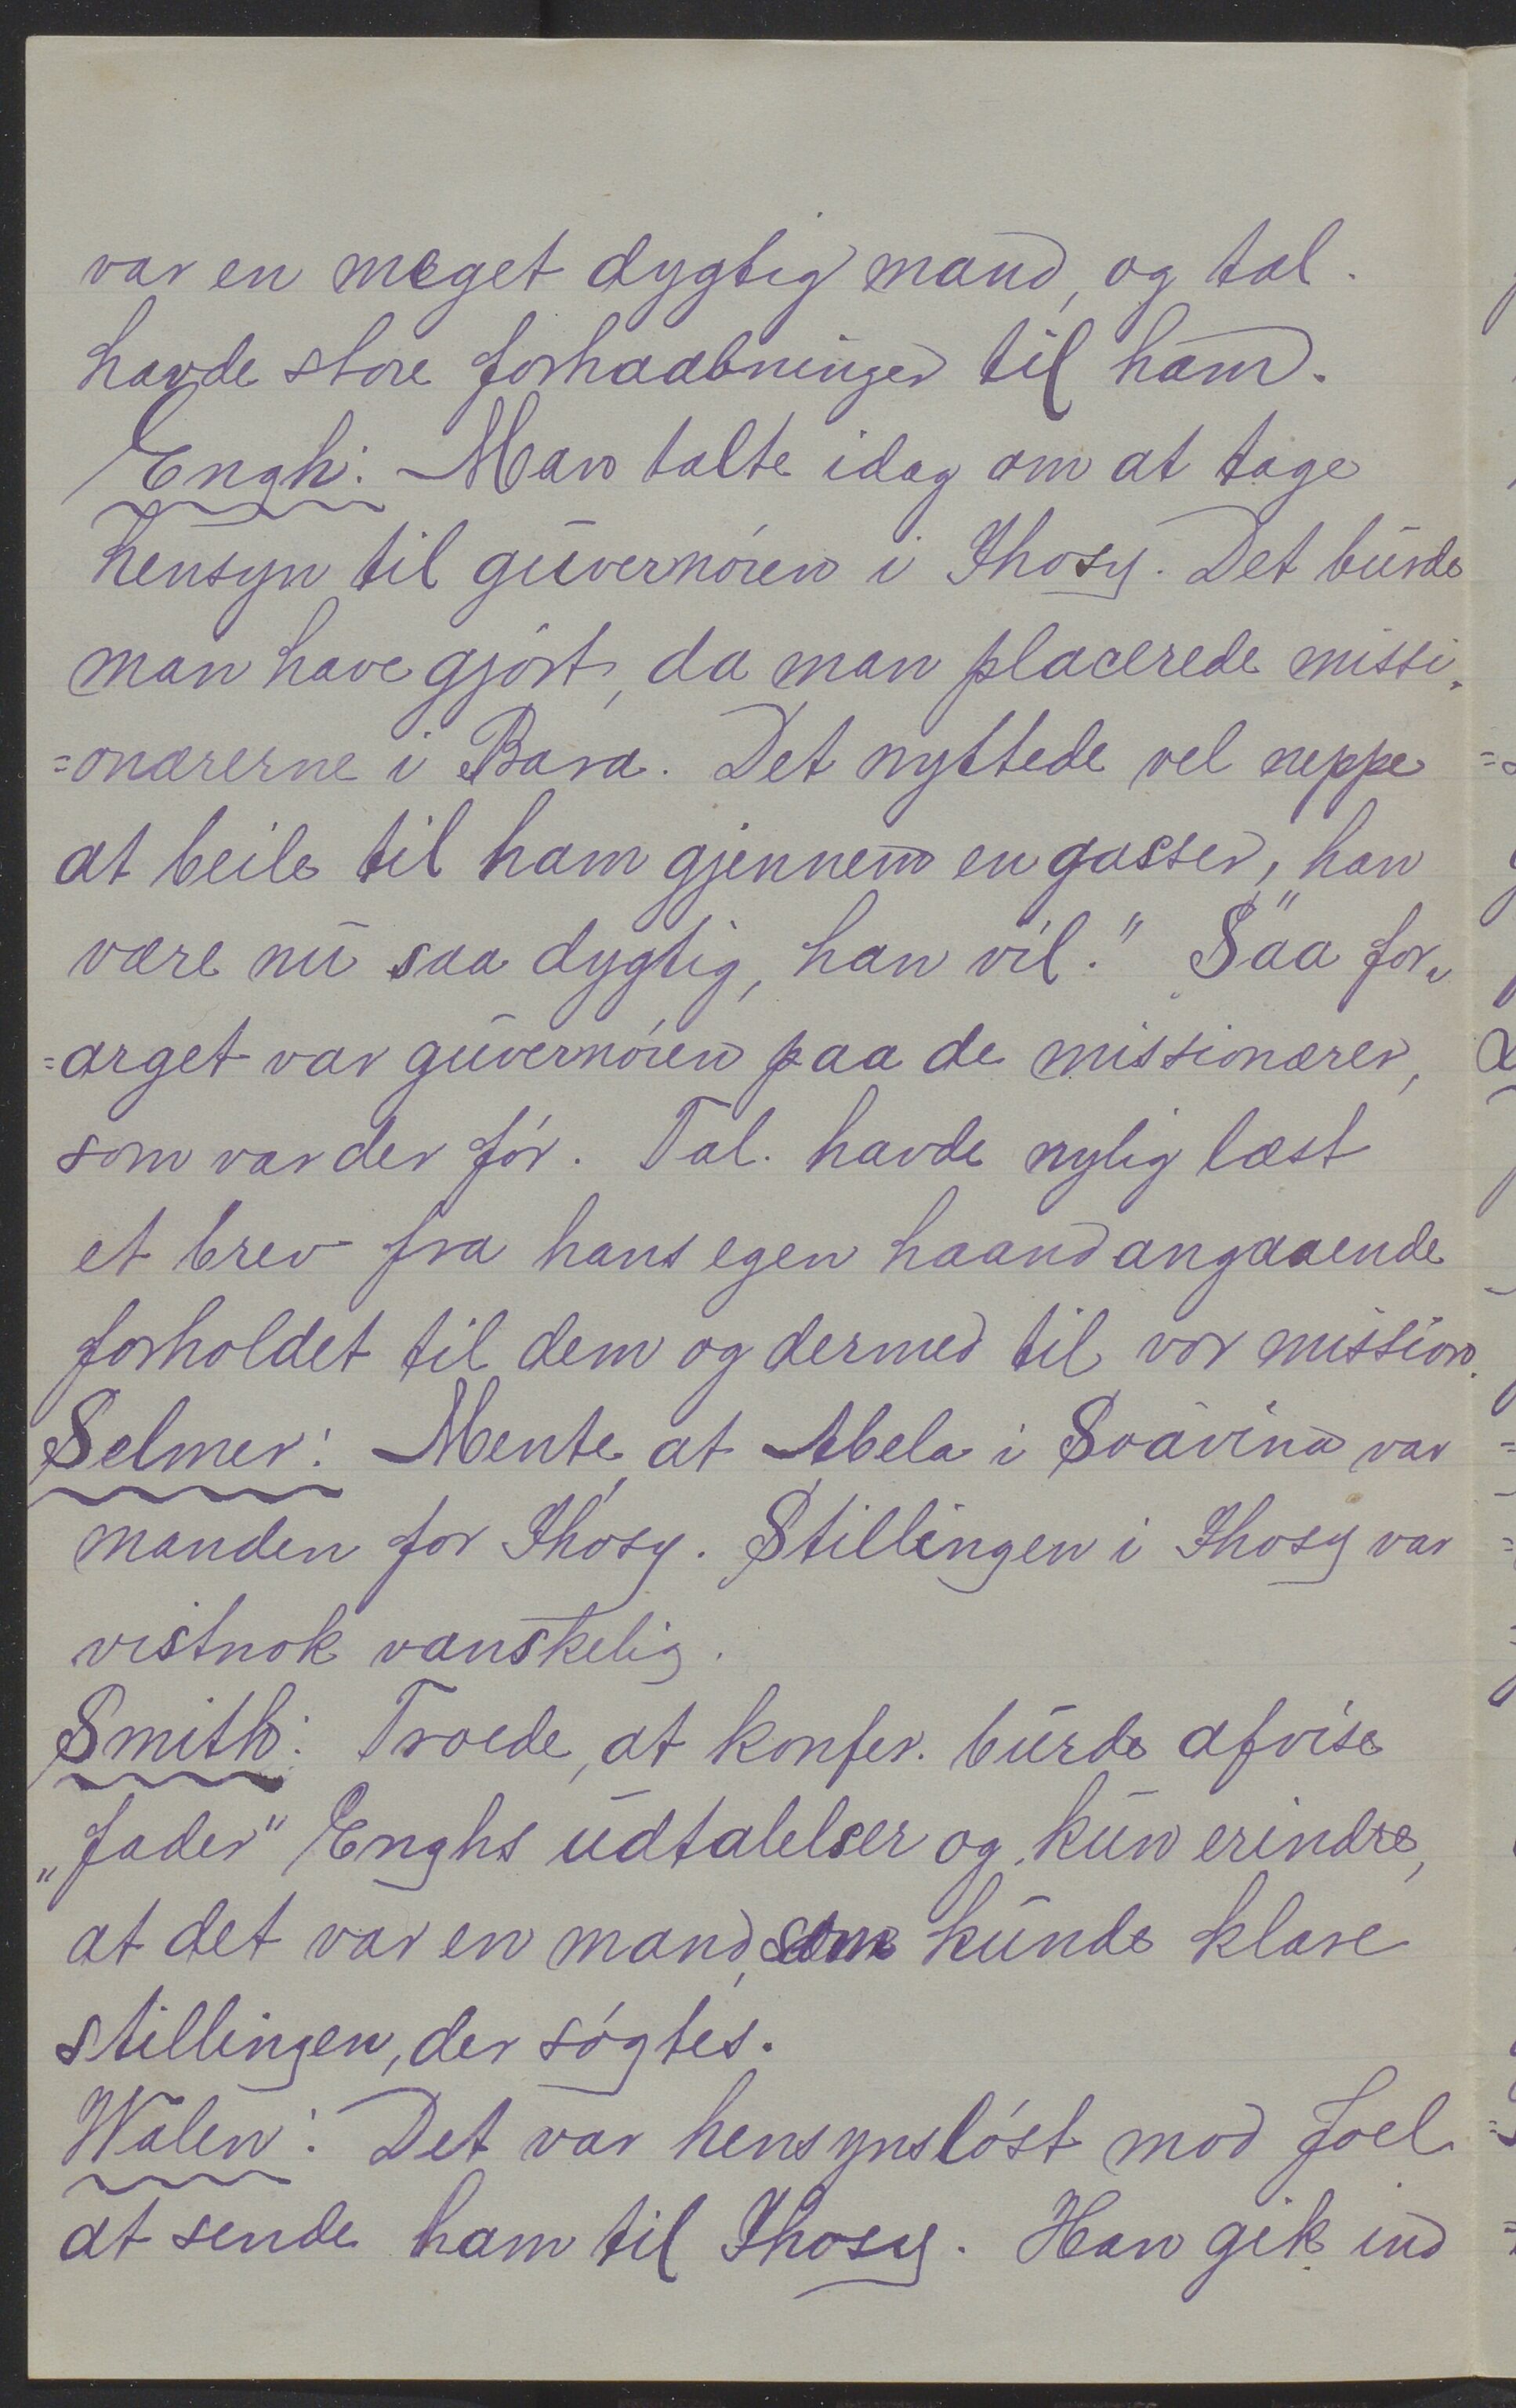 var en meget dygtig mand, og tal.
havde store forhaabninger til ham.
Engh: Man talte idag om at tage
hensyn til guvernøren i Ihosy. Det burde
man have gjort, da man placerede missi„
=onærerne i Bara. Det nyttede vel neppe
at beile til ham gjennem en gasser, „han
være nu saa dygtig, han vil." Saa for„
=arget var guvernøren paa de missionærer,
som var der før. Tal. havde nylig læst
et brev fra hans egen haand angaaende
forholdet til dem og dermed til vor mission.
Selmer: Mente, at Abela i Soavina var
manden for Ihosy. Stillingen i Ihosy var
vistnok vanskelig.
Smith: Troede, at konfer. burde afvise
„fader" Enghs udtalelser og kun erindre,
at det var en mand, som kunde klare
stillingen, der søgtes.
Walen: Det var hensynsløst mod Joel
at sende ham til Ihosy. Han gik ind